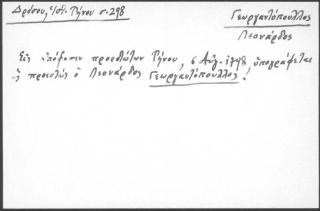 Δρόσου, Ἱστ. Τήνου σ. 298
Γεωργαντόπουλλος
Λεονάρδος
Εἰς ἀπόφασιν προεστώτων Τήνου, 6 Αὐγ. 1798, ὑπογράφεται
ὡς προεστώς ὁ Λεονάρδος Γεωργαντόπουλλος.